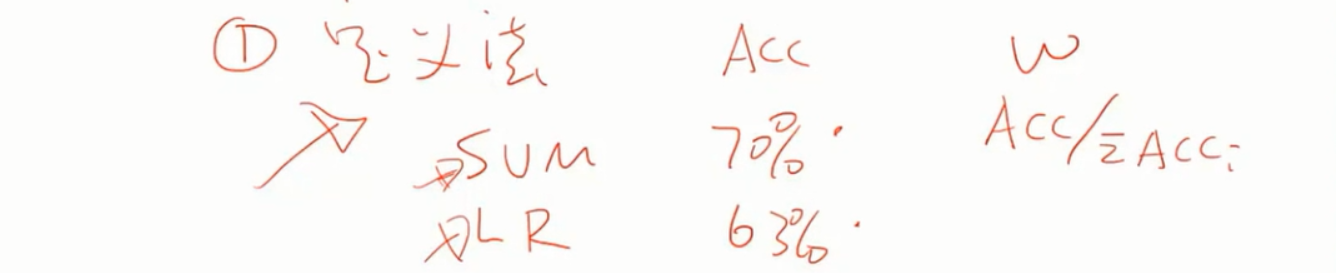 ① 定义法 Acc W
SUM 70% Acc/ΣAcci
LR 63%